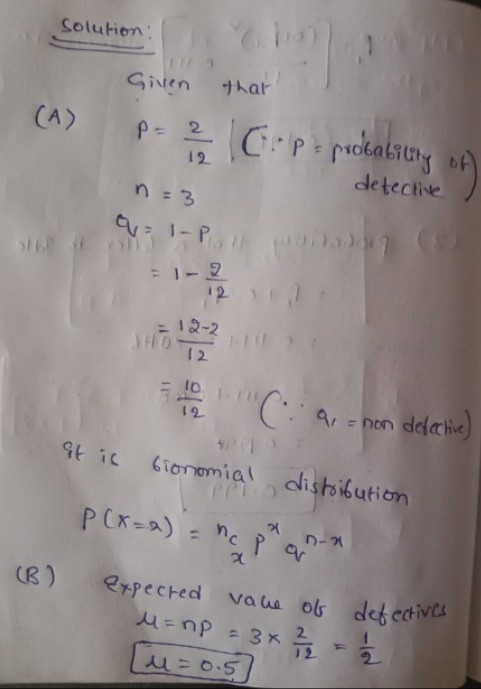 Solution:
Given that
(A)
P = 2/12 (∵ P = probability of defective)
n = 3
q = 1 - P
= 1 - 2/12
= 12-2/12
= 10/12 (∵ q = non defective)
It is bionomial distribution
P(X=x) = nCx p^x q^n-x
(B) Expected value of defectives
μ = np = 3 × 2/12 = 1/2
μ = 0.5